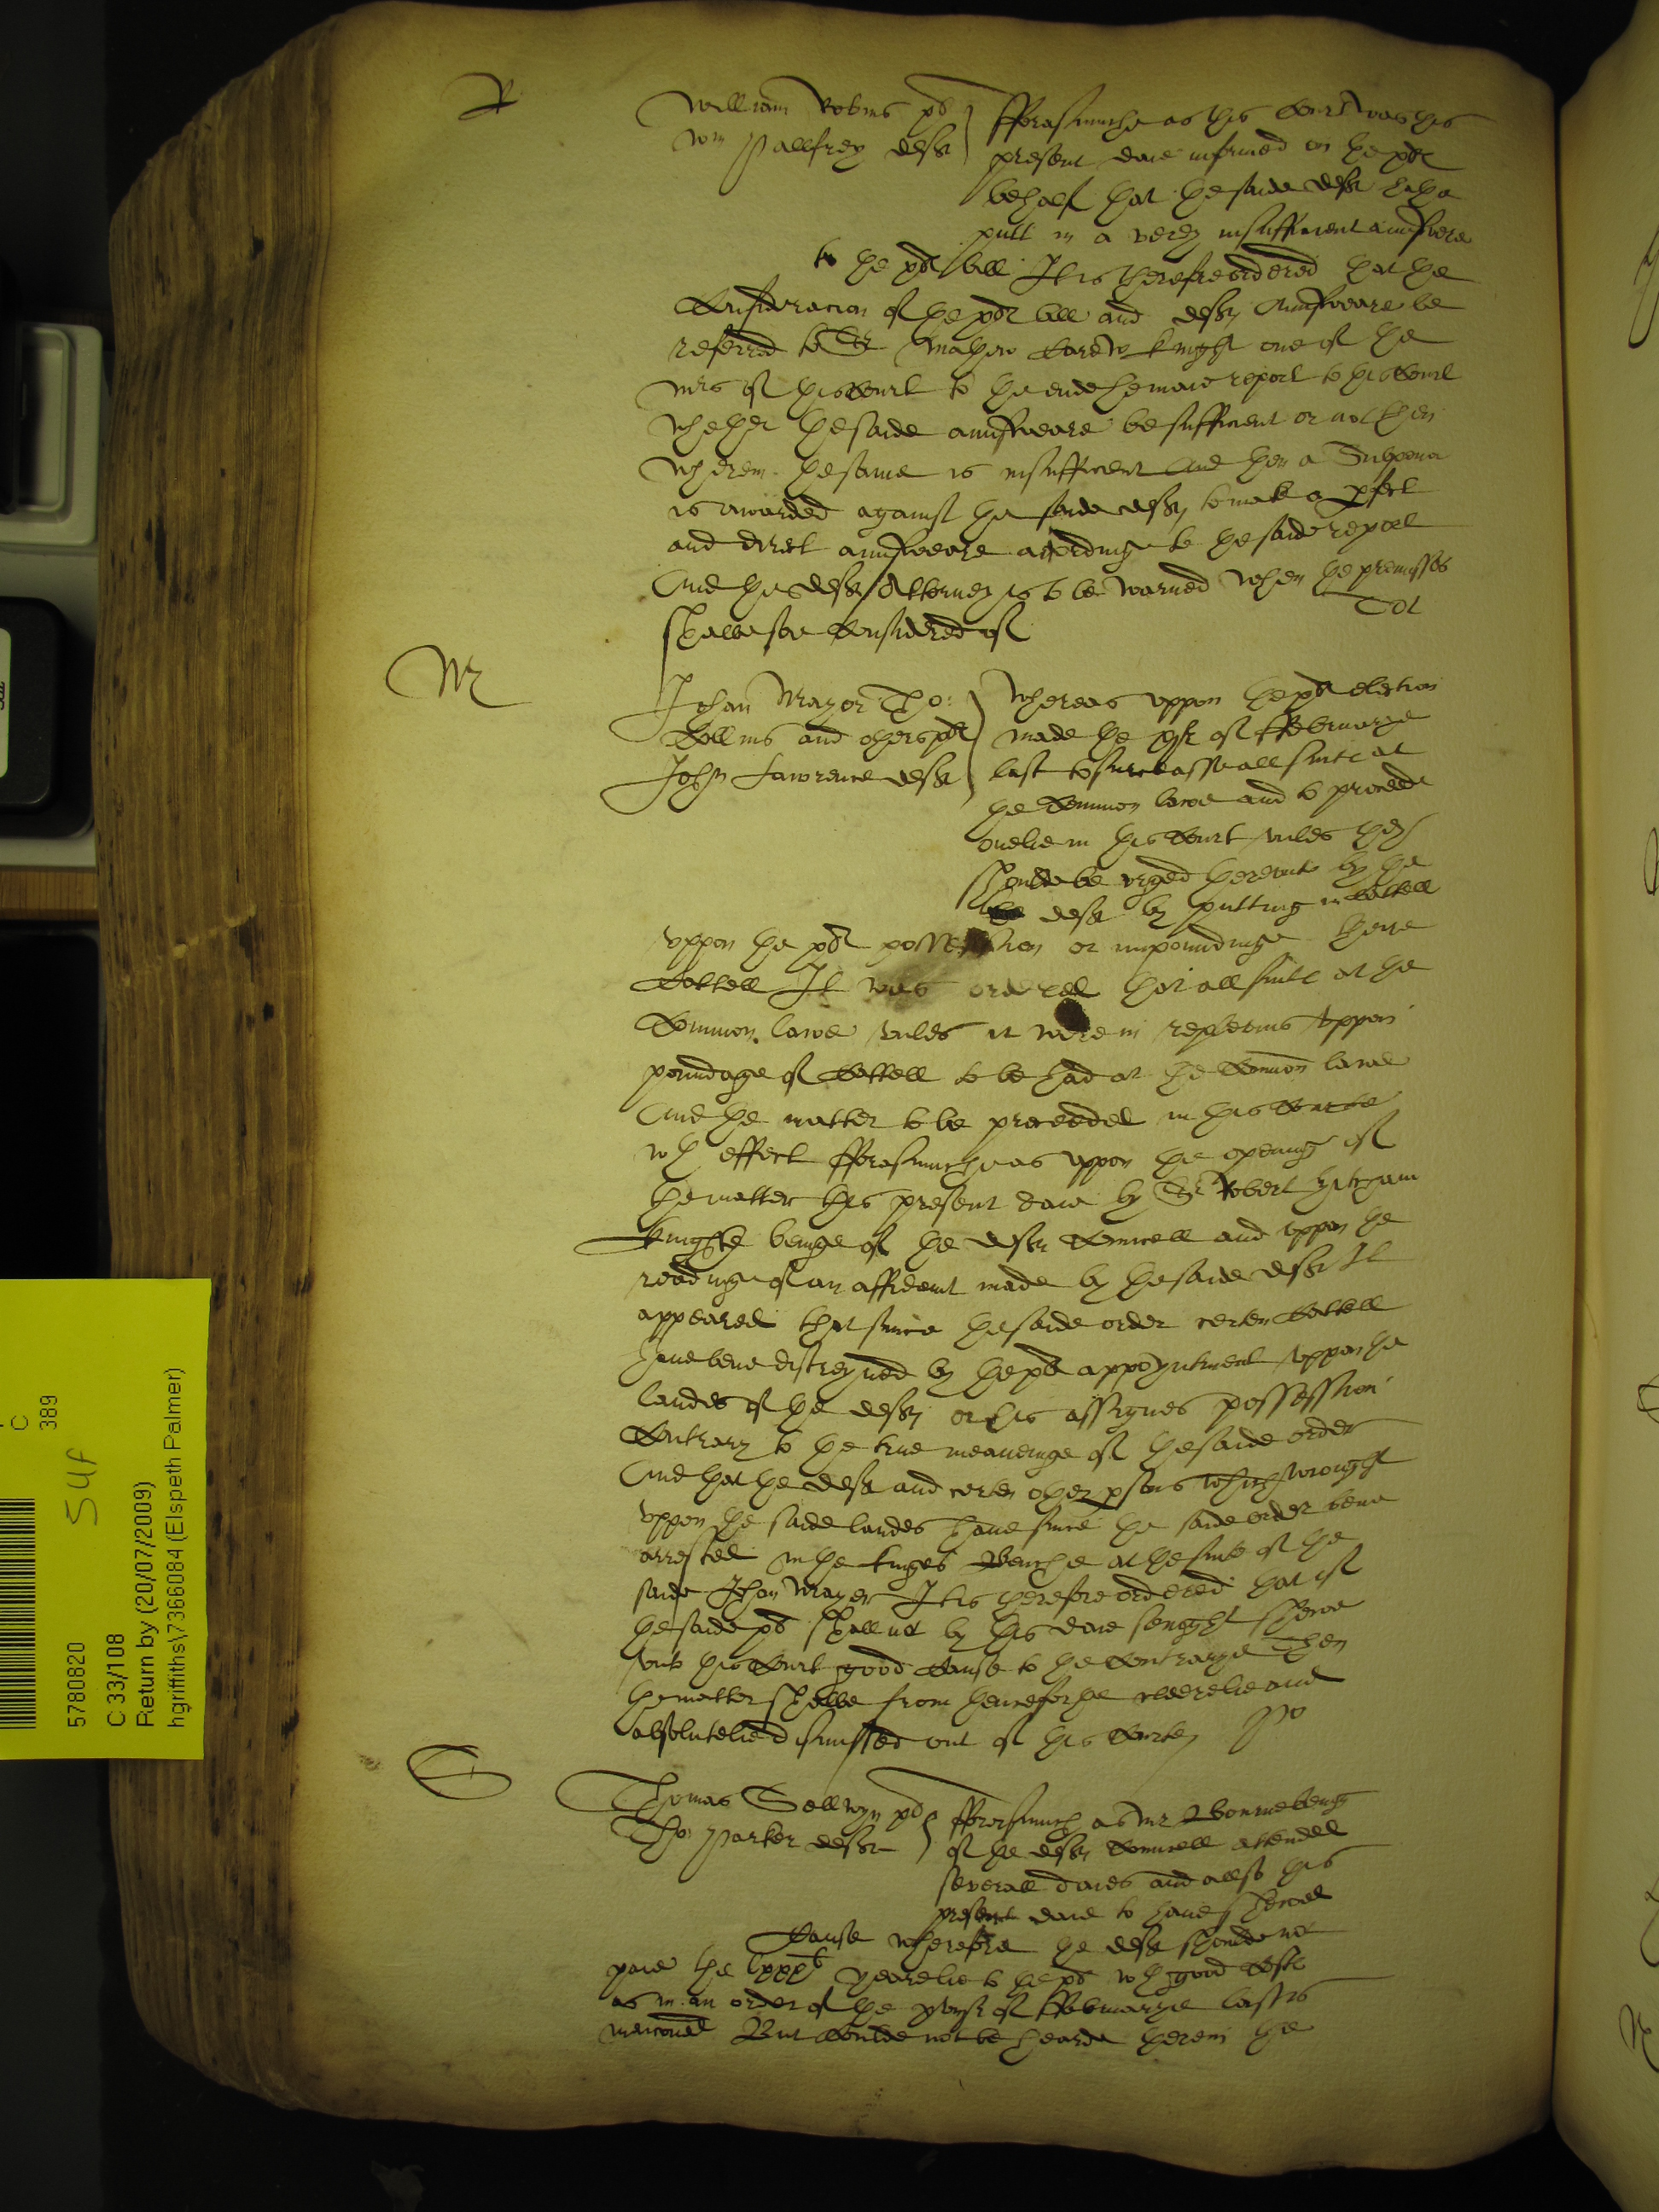 R
William Robins pl
Wm Pallfrey deft
fforasmuche as this Court was this
present daie informed on the pltes
behalf that the saide deft hathe
putt in a verey insufficient aunswere
to the pltes bill It is therefore ordered that the
Consideracion of the pltes bill and deftes Aunsweare be
referred to Sr Mathew Carew knight one of the
mrs of this Court to the ende he maie report to this Court
whether the saide aunsweare be sufficient or not then
wherein the same is insufficient And then a Subpena
is awarded against the saide deft to make a pfect
and direct aunsweare accordinge to the saide report
And the deftes Attorney is to be warned when the premisses
shalbe soe Considered of
M
Johan Mayer Tho:
Collins and others pltes
John Lawrence deft
Whereas vppon the pltes election
made the of ffebruarye
last to surceasse all suite at
the Common lawe and to proceede
onelie in this Court vnles they
shoulde be vrged therevnto by the
deft by putting in Cattell
vppon the pltes possession or impoundinge theire
Cattell It was ordered that all suite at the
Common lawe vnles it were in repleevins vppon
poundage of Cattell to be had at the Common lawe
And the matter to be proceeded in this Courte
wth effect fforasmuche as vppon the opening of
the matter this present daie by Sr Robert Hitcham
knighte beinge of the deftes Councell and vppon the
readinge of an affidavit made by the saide deft It
appeared that since the saide order certen Cattell
haue bene distreyned by the pltes appoyntment vppon the
landes of the deftes or his assignes possession
Contrary to the true meaninge of the saide order
And that the deft and certen other psons which wrought
vppon the saide landes haue since the saide order bene
arrested in the kinges Benche at the suite of the
saide Johan Mayer It is therefore ordered that if
the saide pl shall not by this daie senight shewe
vnto this Court good Cause to the Contrarye Then
the matter shalbe from hencefoorthe cleerelie and
absolutelie dismissed out of this Courte
S
Thomas Sellwyn pl
Tho: Parker deft
fforasmuch as mr Bourne being
of the deftes Councell attended
severall daies and allso this
present daie to haue shewed
Cause wherefore the deft shoulde not
paie the yearelie to the pl wth good Costes
as in an order of the of ffebruarye last is
mencioned But Coulde not be hearde therein the
5780820
C 33/108
Return by (20/07/2009)
hgriffiths\7366084 (Elspeth Palmer)
C
389